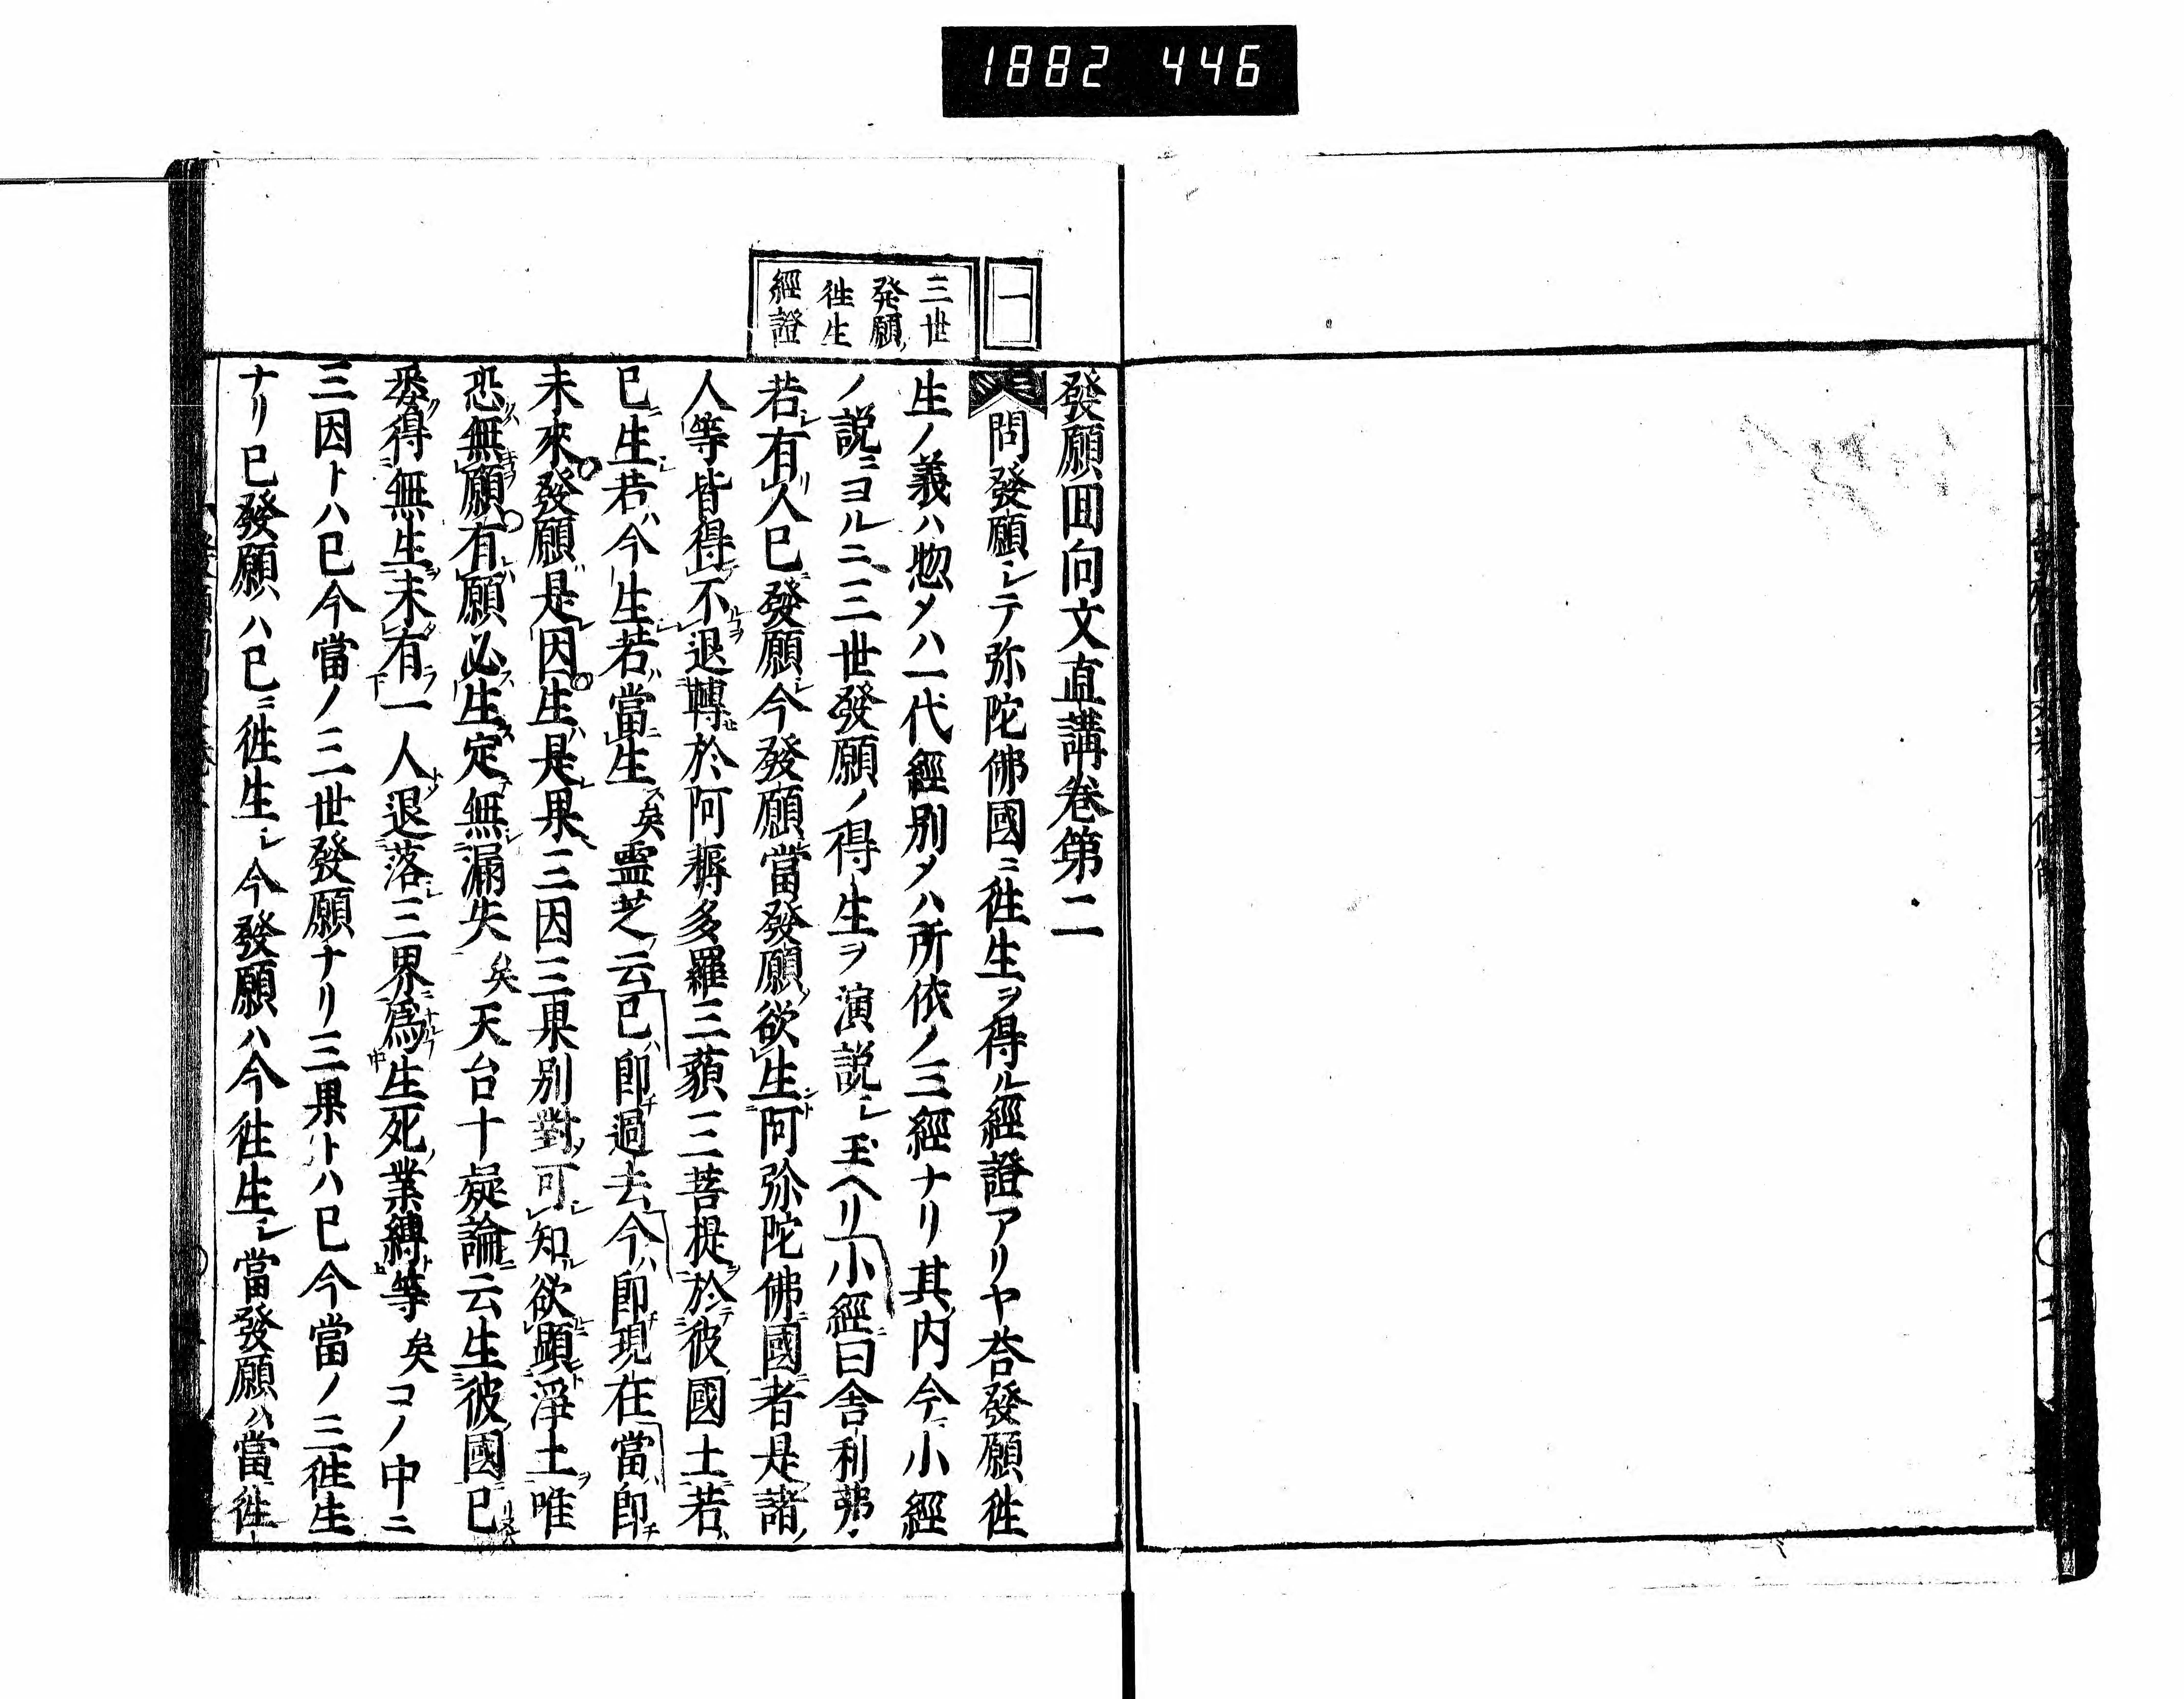 1882 446
一
三世
発願
徃生
經證
發願回向文直講卷第二
問發願シテ弥陀佛國ニ徃生ヲ得ル經證アリヤ荅發願徃
生ノ義ハ惣メハ一代經別メハ所依ノ三經ナリ其内今小經
ノ説ニヨルニ三世發願ノ得生ヲ演説シ玉ヘリ小經曰舎利弗
若有人已發願今發願當發願欲生阿弥陀佛國者是諸
人等皆得不退轉於阿耨多羅三藐三菩提於彼國土若
已生若今生若當生矣霊芝云已即過去今即現在當即
未來發願是因生是果三因三果別對可知欲顕淨土唯
恐無願有願必生定無漏失矣天台十疑論云生彼國已
悉得無生未有一人退落三界爲生死業縛等矣コノ中ニ
三因トハ已今當ノ三世發願ナリ三果トハ已今當ノ三徃生
ナリ已發願ハ已ニ徃生シ今發願ハ今徃生シ當發願ハ當徃